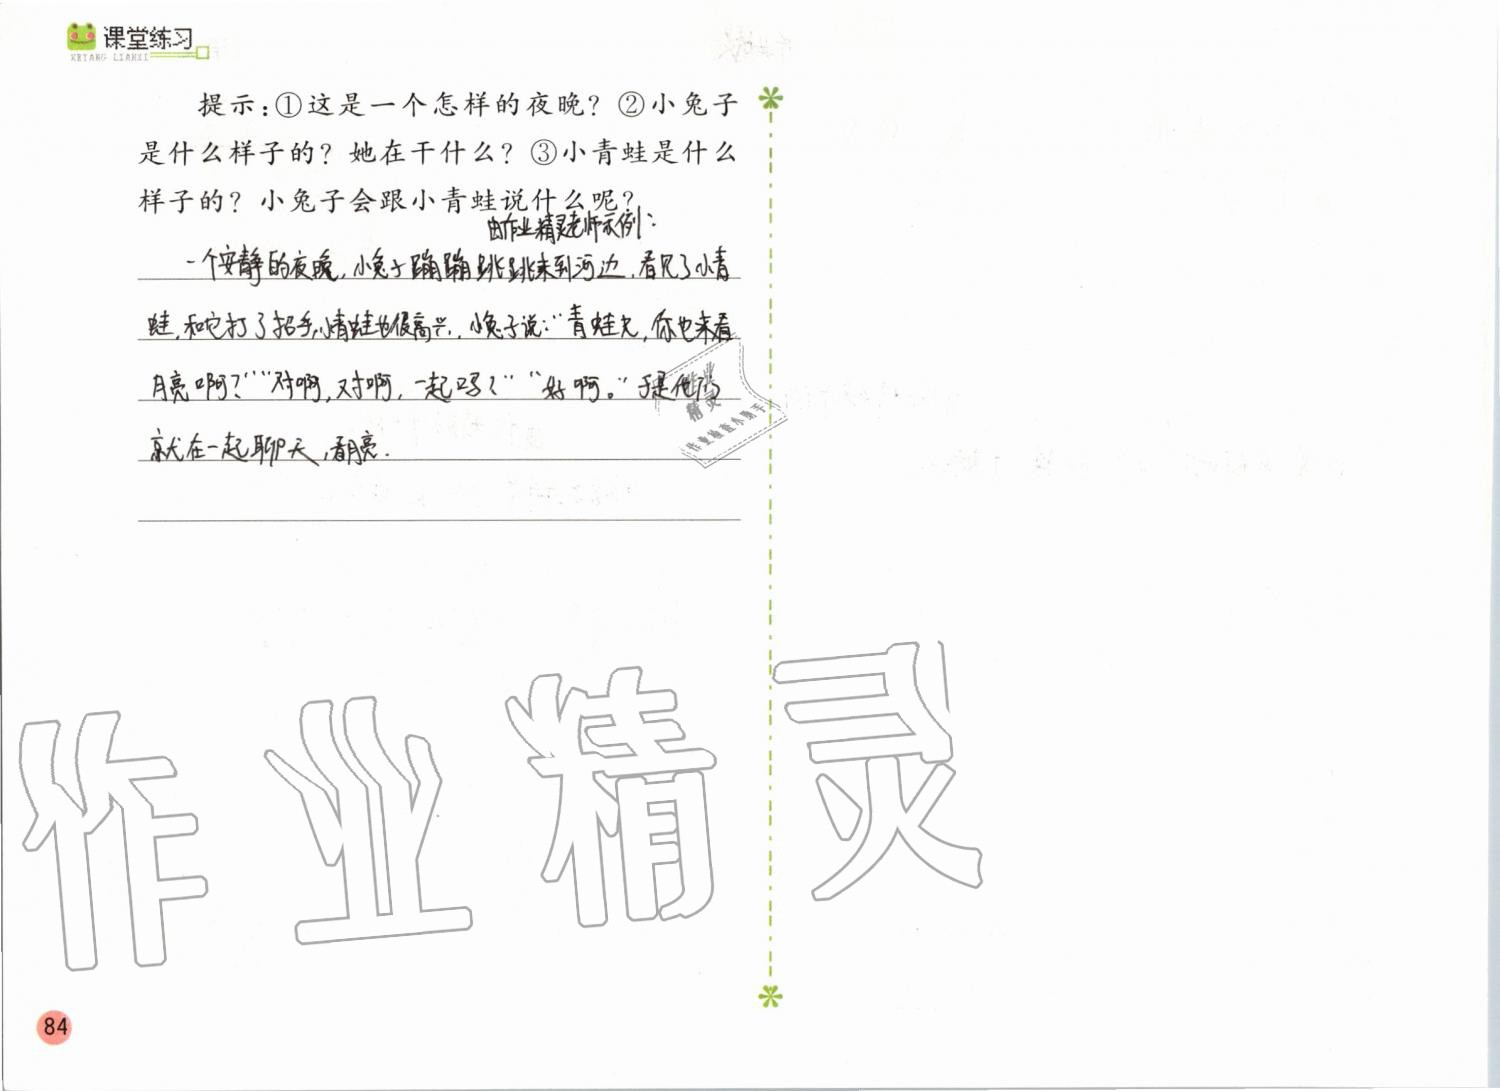 课堂练习
KETANG LIANXI
提示:①这是一个怎样的夜晚? ②小兔子
是什么样子的? 她在干什么? ③小青蛙是什么
样子的? 小兔子会跟小青蛙说什么呢?
由作业精灵老师示例:
一个安静的夜晚,小兔子蹦蹦跳跳来到河边,看见了小青
蛙,和它打了招手,小青蛙也很高兴,小兔子说:"青蛙兄,你也来看
月亮啊?""对啊,对啊,一起吗?""好啊。"于是他们
就在一起聊天,看月亮.
作业
精灵
作业检查小助手
作业精灵
84